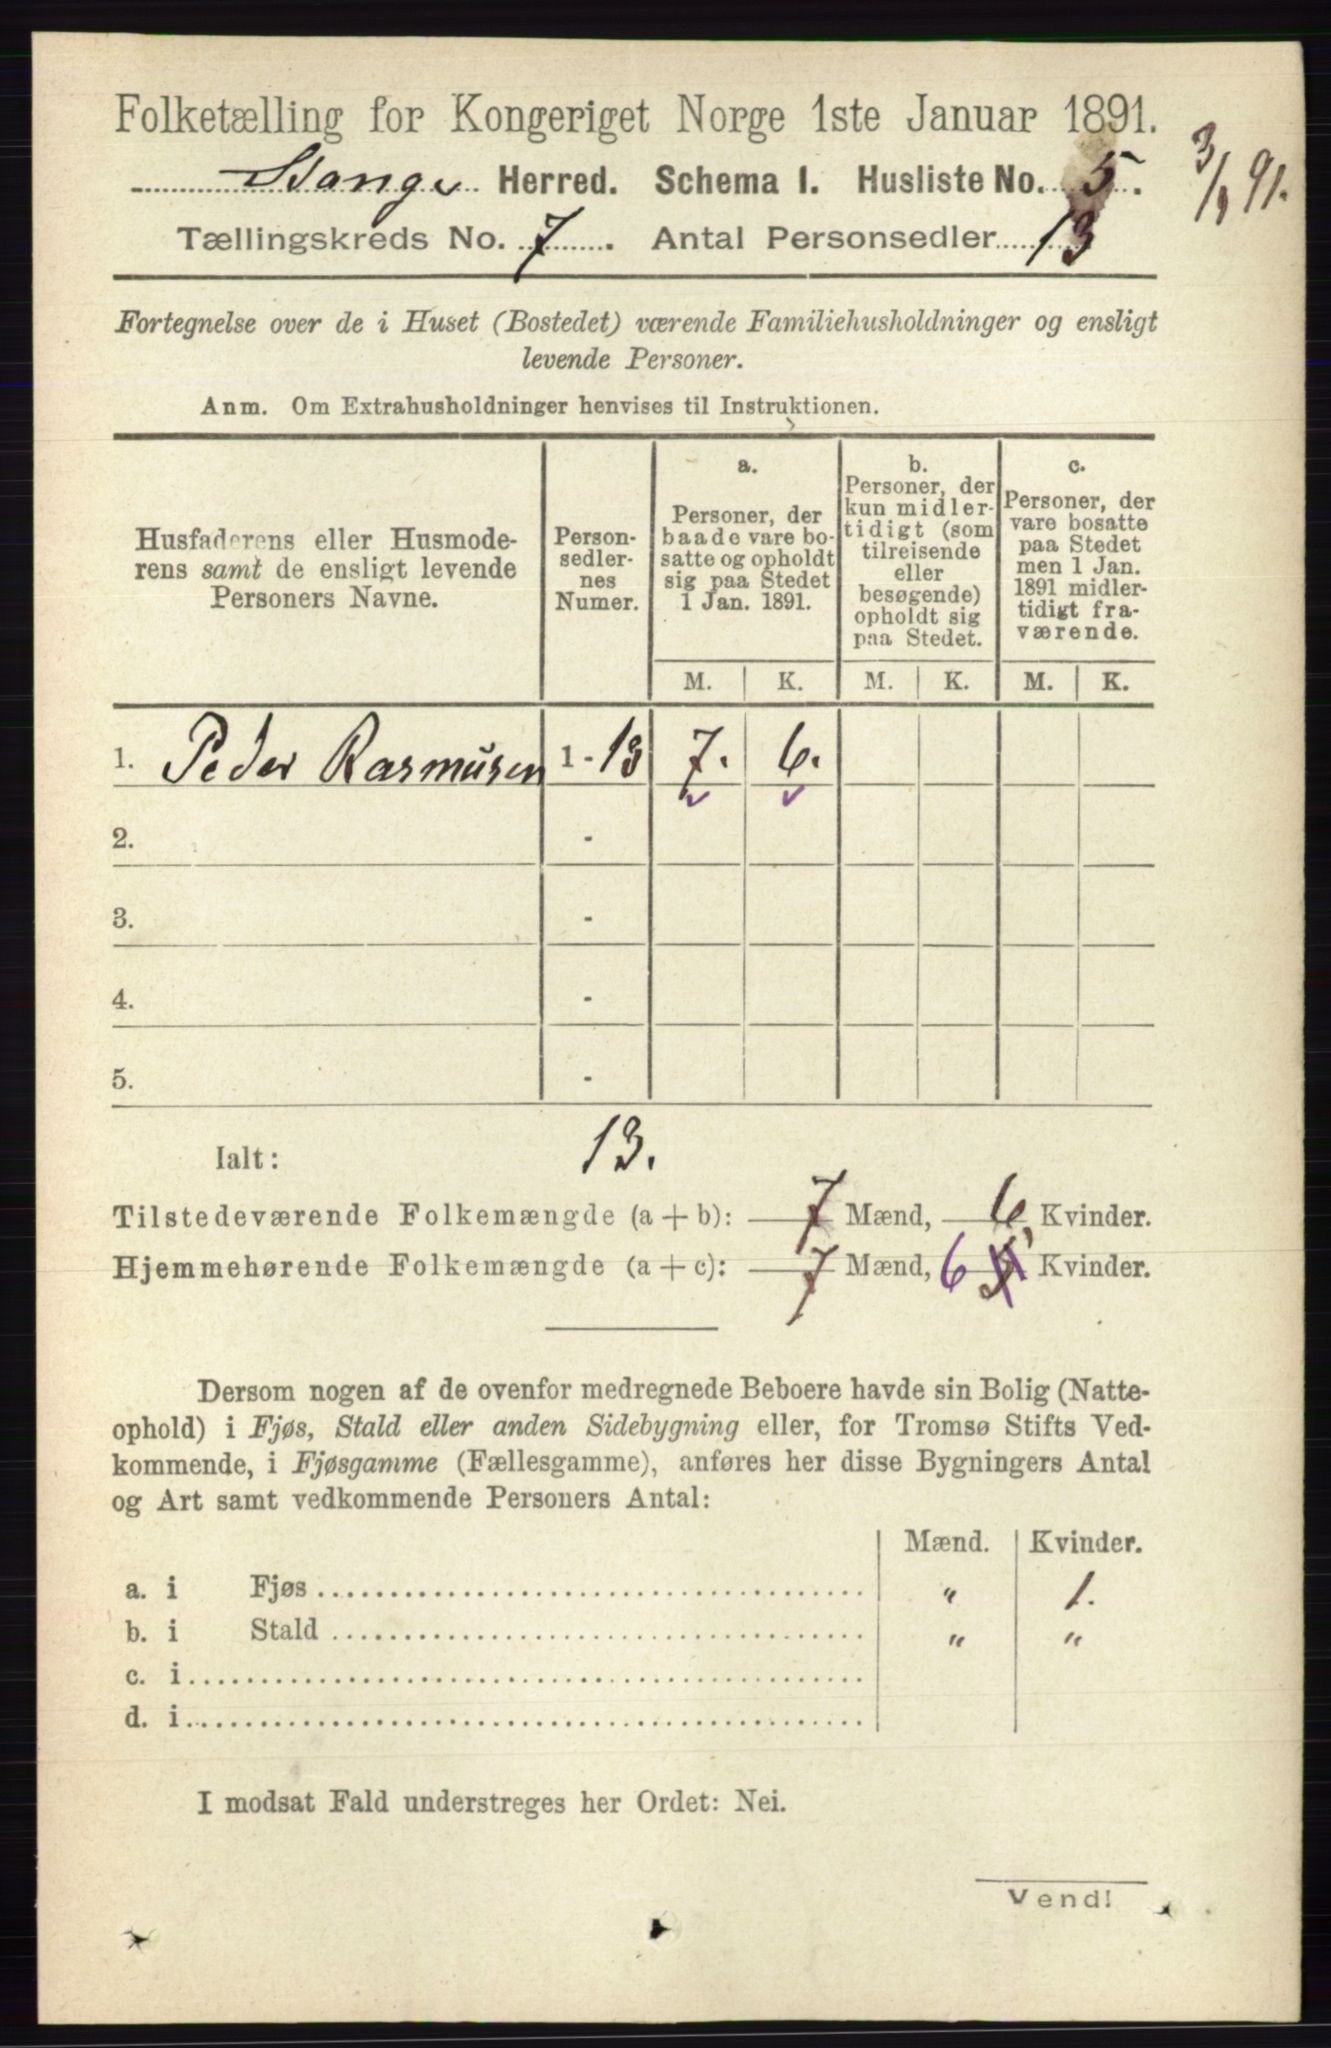 Folketælling for Kongeriget Norge 1ste Januar 1891.
Stange Herred. Schema I. Husliste No. 5.
3/1 91.
Tællingskreds No. 7. Antal Personsedler 13
Fortegnelse over de i Huset (Bostedet) værende Familiehusholdninger og ensligt
levende Personer.
Anm. Om Extrahusholdninger henvises til Instruktionen.
Husfaderens eller Husmode-
rens samt de ensligt levende
Personers Navne.
Person-
sedler-
nes
Numer.
a.
Personer, der
baade vare bo-
satte og opholdt
sig paa Stedet
1 Jan. 1891.
b.
Personer, der
kun midler-
tidigt (som
tilreisende
eller
besøgende)
opholdt sig
paa Stedet.
c.
Personer, der
vare bosatte
paa Stedet
men 1 Jan.
1891 midler-
tidigt fra-
værende.
M. K. M. K. M. K.
1. Peder Rasmusen 1 - 13 7. 6.
2. -
3. -
4. -
5. -
Ialt: 13.
Tilstedeværende Folkemængde (a + b): 7 Mænd, 6, Kvinder.
Hjemmehørende Folkemængde (a + c): 7 Mænd, 6 5 Kvinder.
Dersom nogen af de ovenfor medregnede Beboere havde sin Bolig (Natte-
ophold) i Fjøs, Stald eller anden Sidebygning eller, for Tromsø Stifts Ved-
kommende, i Fjøsgamme (Fællesgamme), anføres her disse Bygningers Antal
og Art samt vedkommende Personers Antal:
Mænd. Kvinder.
a. i Fjøs " 1.
b. i Stald " "
c. i
d. i
I modsat Fald understreges her Ordet: Nei.
Vend!